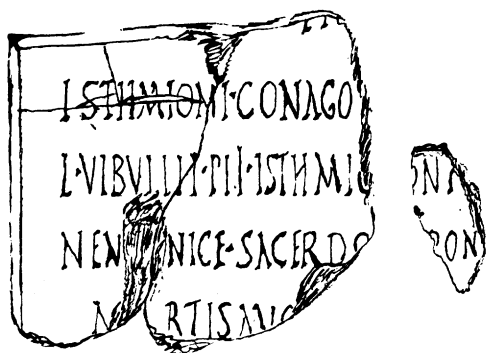 ISTHMIONI·CONAGO
L·VIBVLLII·PII·ISTHMIO ONI
NEN NICE·SACERDO RON
RTISAVG